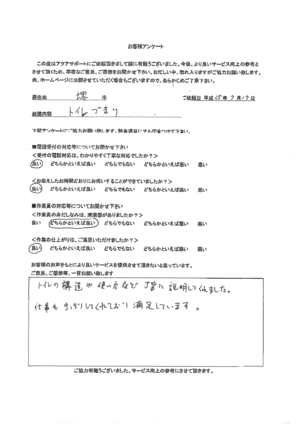 お客様アンケート
この度はアクアサポートにご依頼頂きまして誠に有難うございました。今後、より良いサービス向上の参考と
させて頂くため、率直なご意見、ご感想をお聞かせ下さい。お忙しい中、恐れ入りますがご協力お願い致します。
尚、ホームページに公開させていただく場合もございますので、あらかじめご了承下さい。
居住地 堺 市 ご依頼日 平成
故障内容 トイレづまり
下記アンケートにご協力お願い致します。該当項目に丸印をつけて下さい。
■電話受付の対応等についてお聞かせ下さい
<受付の電話対応は、わかりやすく丁寧な対応でしたか?>
良い どちらかといえば良い どちらでもない どちらかといえば悪い 悪い
<お伝えしたお時間どおりにお伺いすることができていましたか?>
良い どちらかといえば良い どちらでもない どちらかといえば悪い 悪い
■作業員の対応等についてお聞かせ下さい
<作業員の身だしなみは、清潔感がありましたか?>
良い どちらかといえば良い どちらでもない どちらかといえば悪い 悪い
<作業の仕上がりは、ご満足いただけましたか?>
良い どちらかといえば良い どちらでもない どちらかといえば悪い 悪い
お客様のお声をもとにより良いサービスを提供させて頂きたいと思っています。
ご意見、ご感想等、一言お願い致します
トイレの構造や使い方など丁寧に説明してくれました。
仕事もきっちりしてくれており満足しています。
ご協力有難うございました。サービス向上の参考にさせて頂きます。